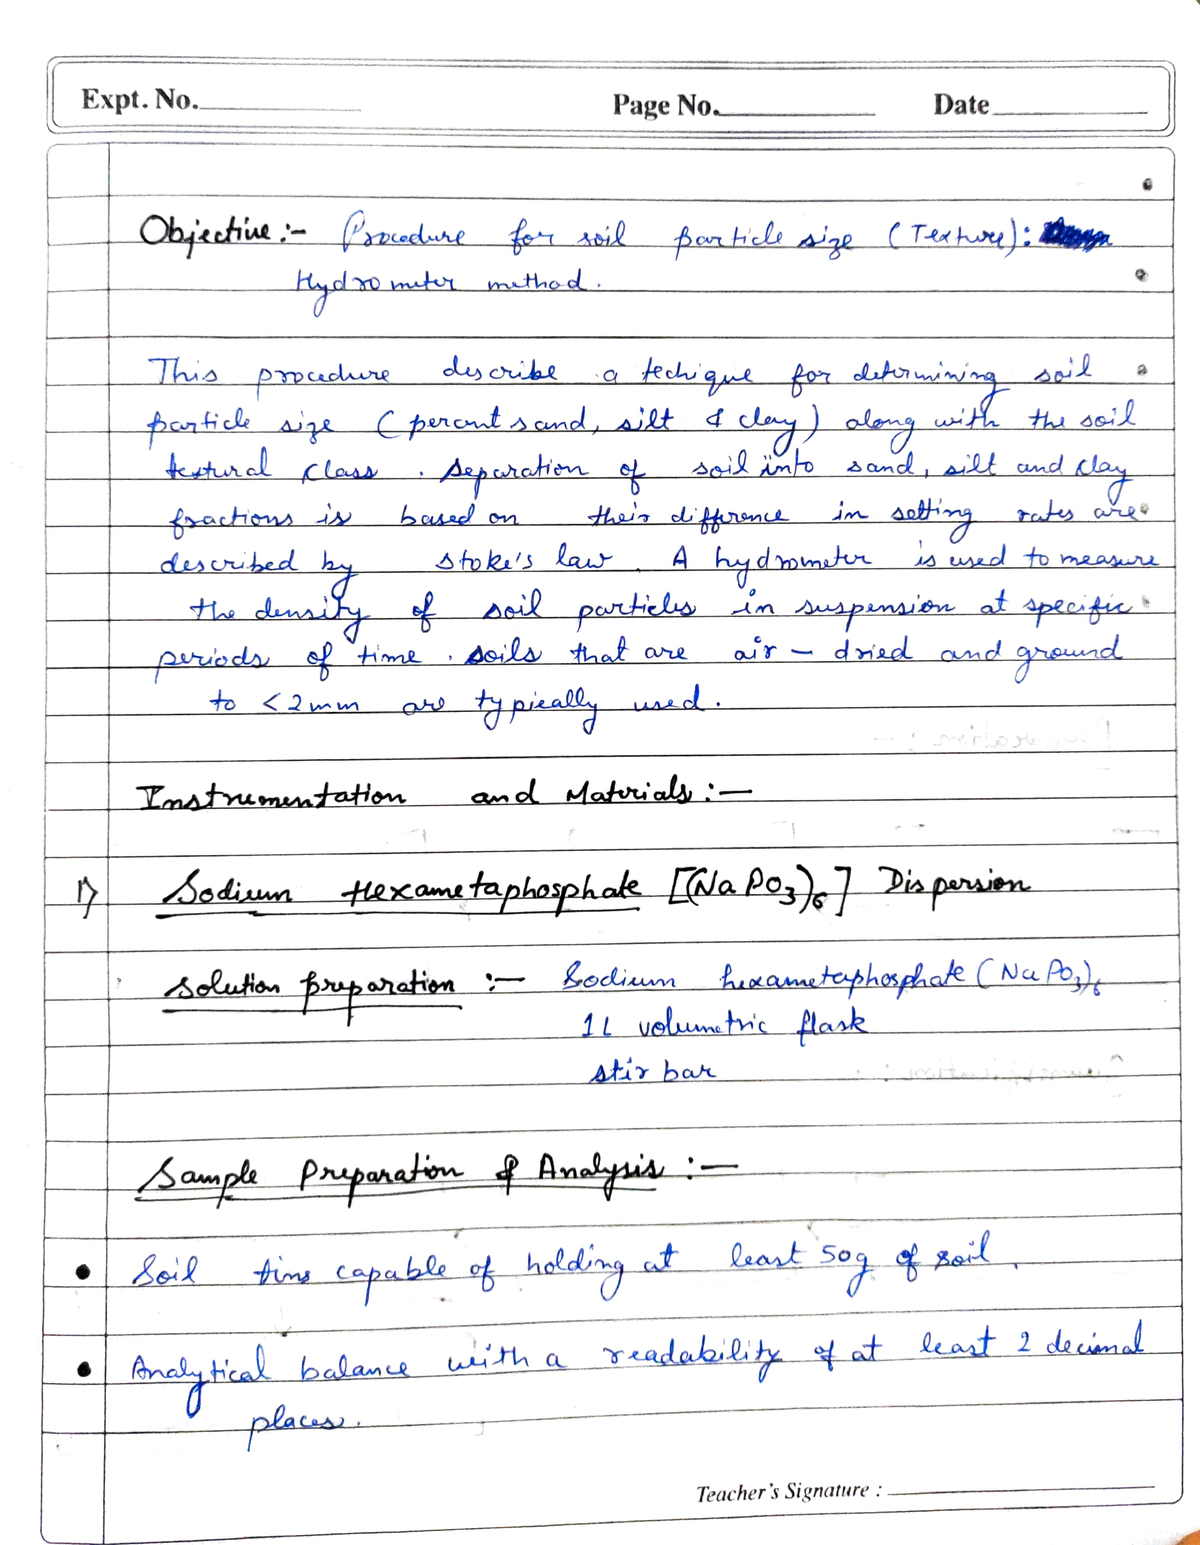 Expt. No. Page No. Date
Objective :- Procedure for soil particle size (Texture):
Hydrometer method.
This procedure describe a techique for determining soil
particle size (percent sand, silt & clay) along with the soil
textural class. Separation of soil into sand, silt and clay
fractions is based on their difference in setting rates are
described by stoke's law. A hydrometer is used to measure
the density of soil particles in suspension at specific
periods of time. soils that are air - dried and ground
to <2mm are typically used.
Instrumentation and Materials :-
1) Sodium Hexametaphosphate [(NaPO3)6] Dispersion
solution preparation :- Sodium hexametaphosphate (NaPO3)6
1L volumetric flask
stir bar
Sample Preparation & Analysis :-
• Soil tins capable of holding at least 50g of soil.
• Analytical balance with a readability of at least 2 decimal
places.
Teacher's Signature :